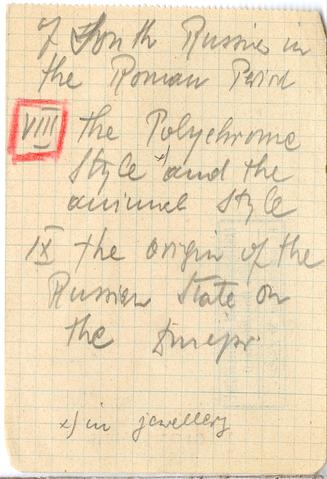 of South Russia in
the Roman Period
VIII the Polychrome
Style x) and the
animal style
IX the origin of the
Russian State on
the Dniepr
x) in jewellery